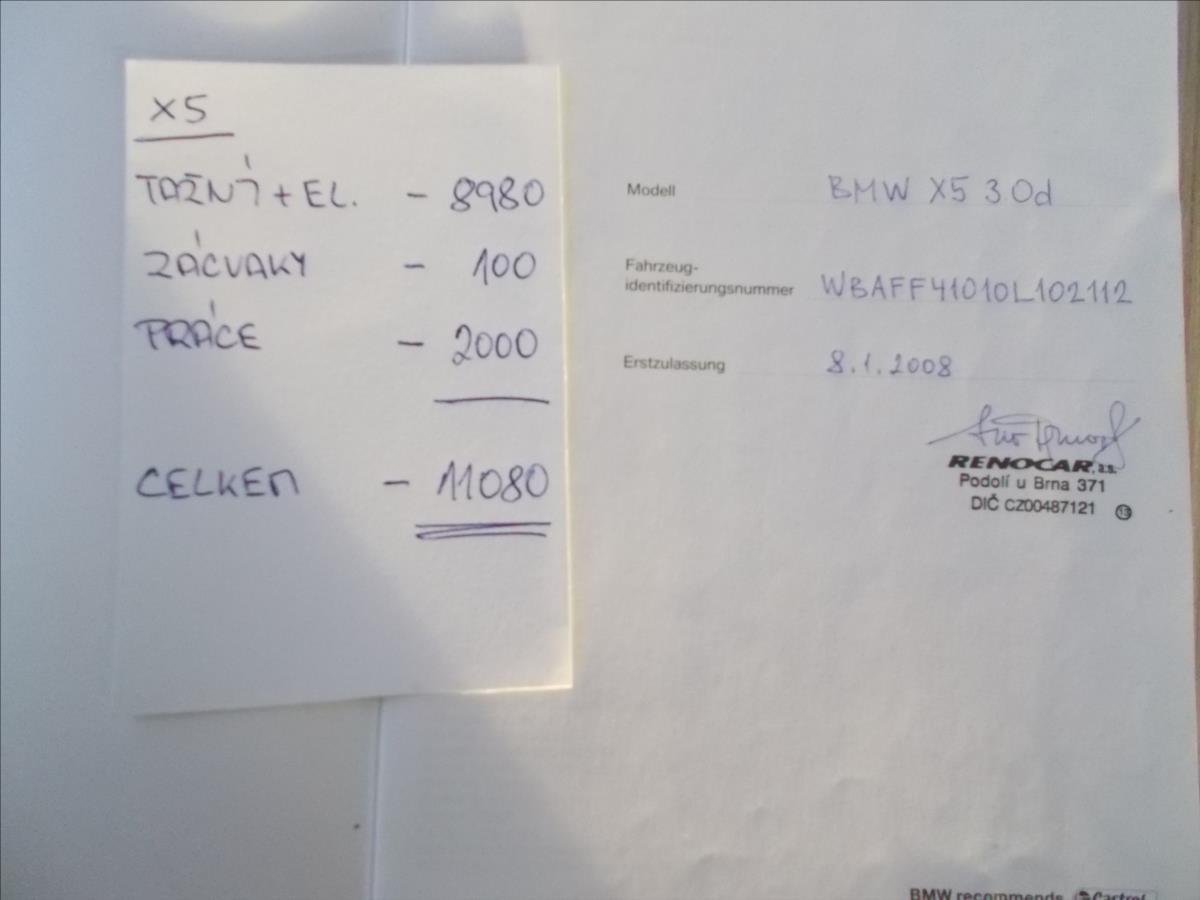 X5
TAŽNÝ + EL. - 8980
ZÁCVAKY - 100
PRÁCE - 2000
CELKEM - 11080
Modell BMW X5 3 0d
Fahrzeug-
identifizierungsnummer WBAFF41010L102112
Erstzulassung 8.1.2008
RENOCAR, a.s.
Podolí u Brna 371
DIČ CZ00487121
BMW recommends Castrol